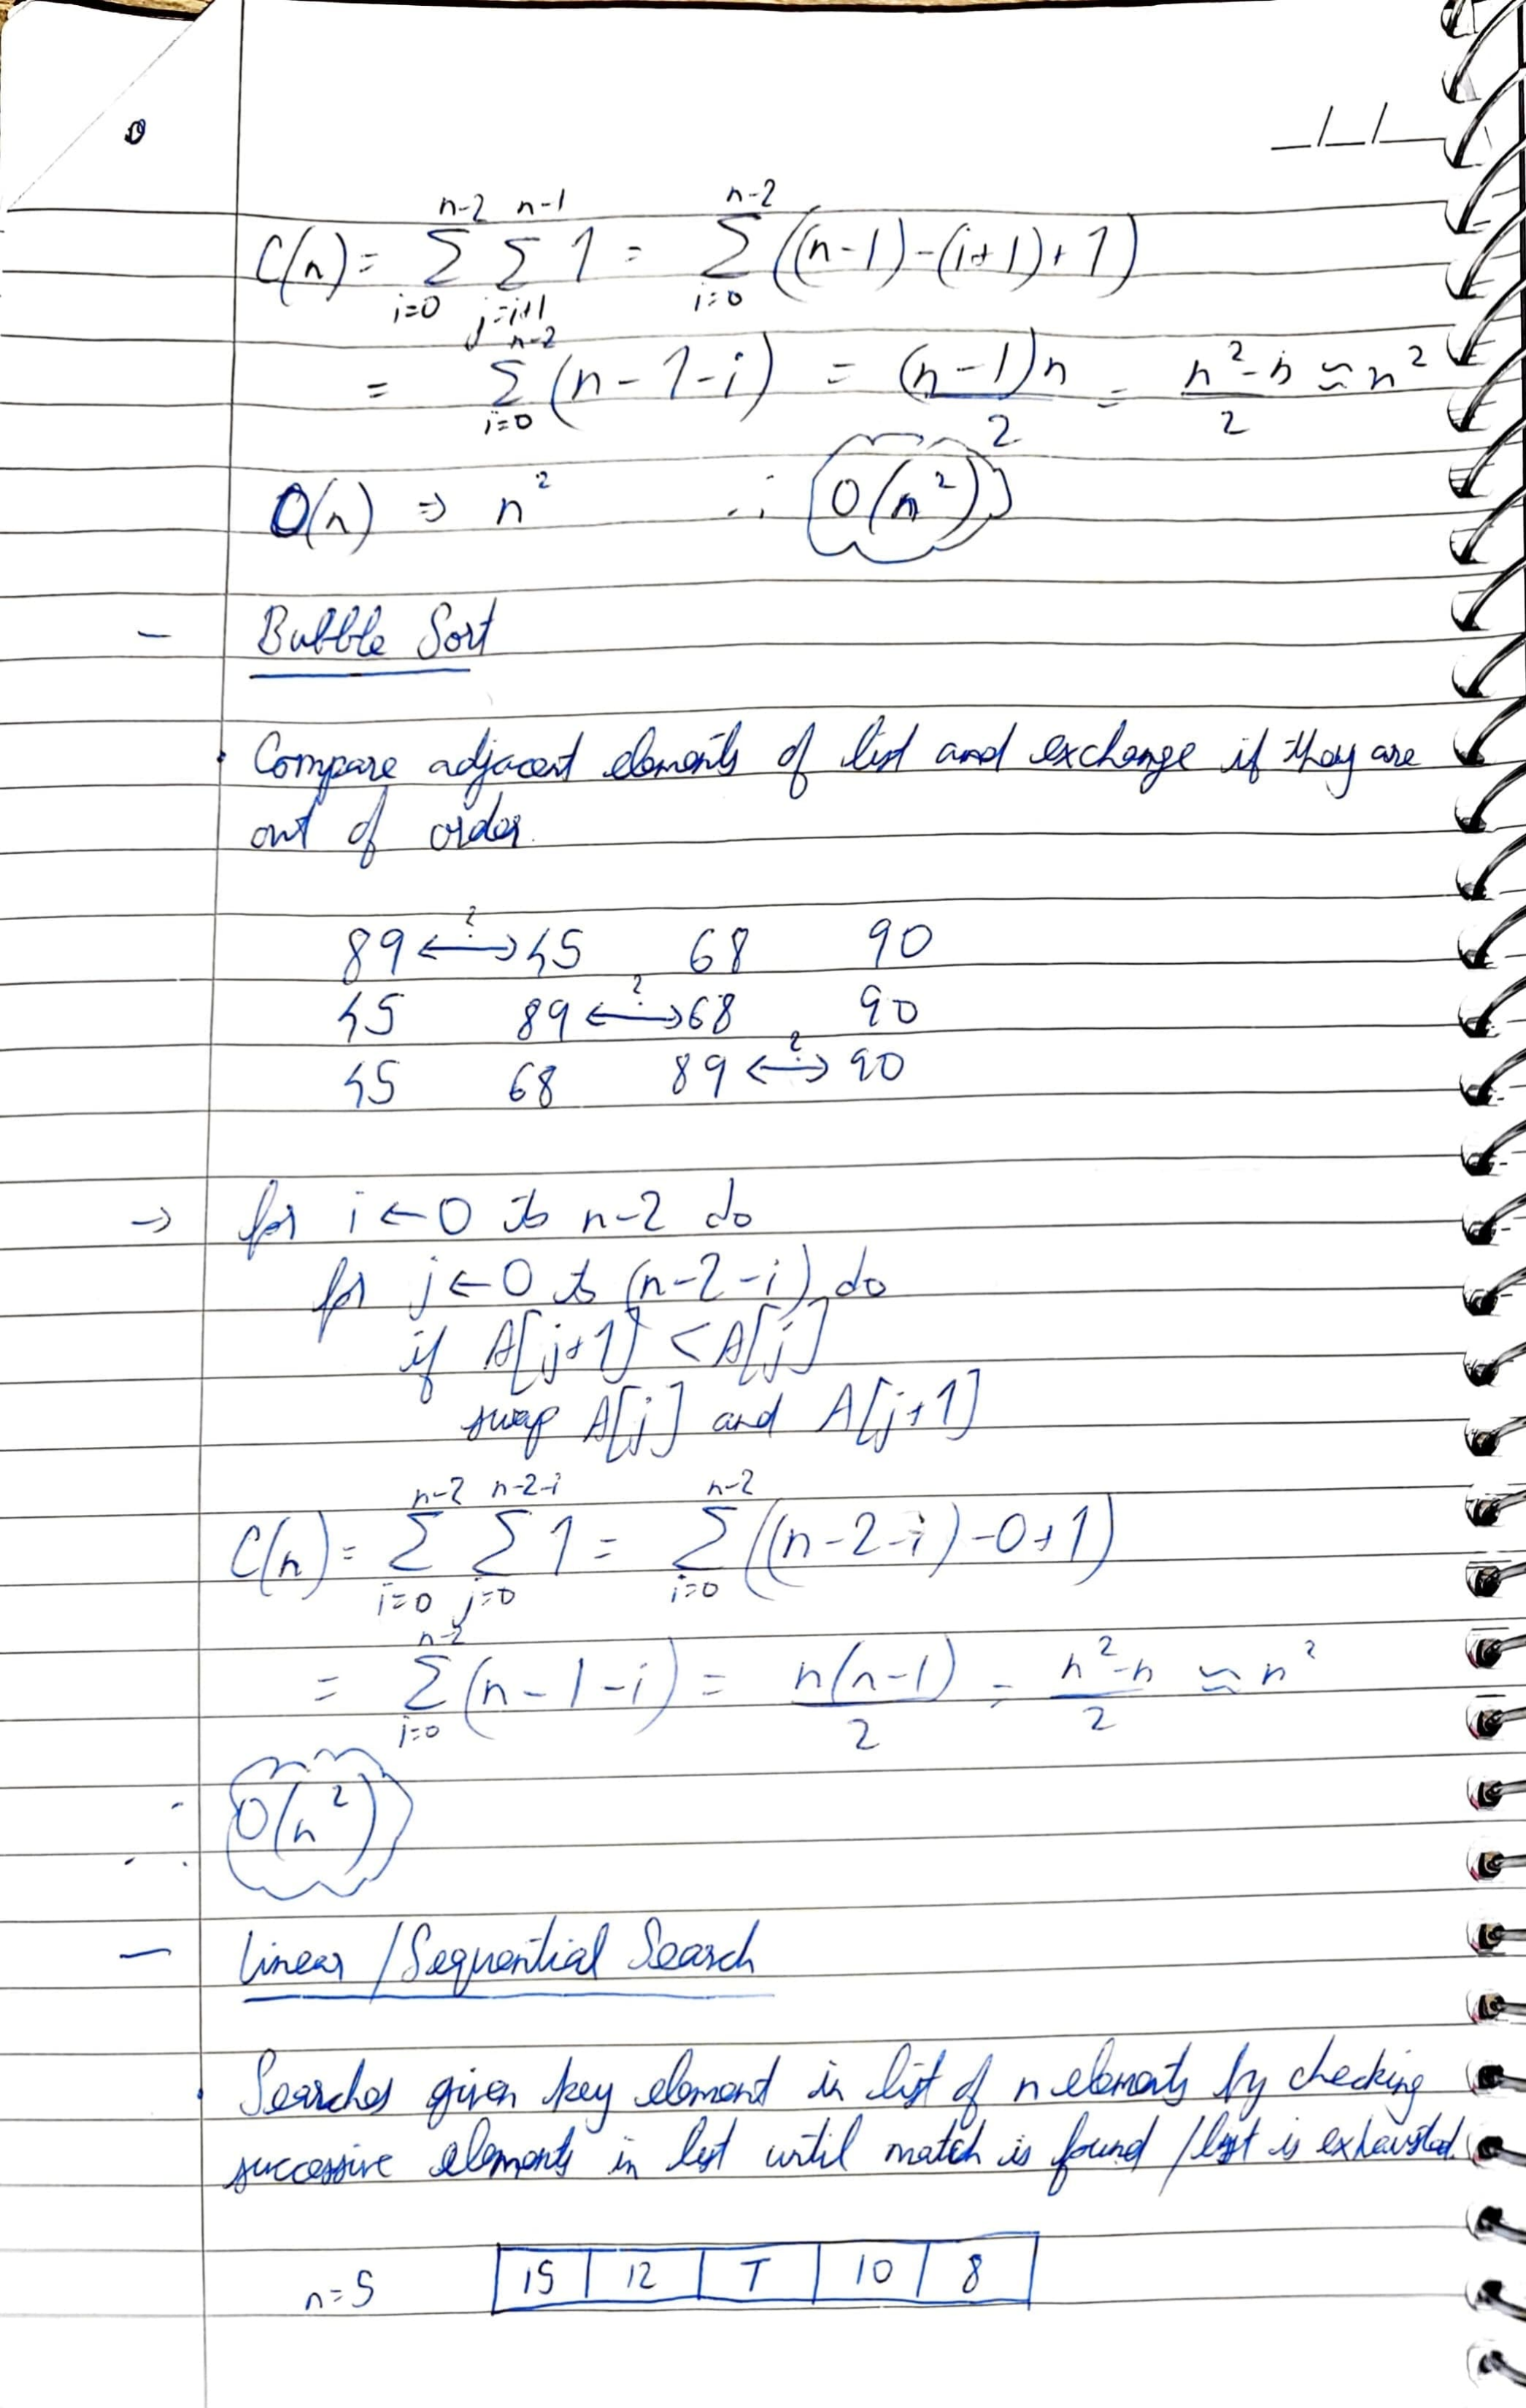 __/__/____
C(n) = Σ_{i=0}^{n-2} Σ_{j=i+1}^{n-1} 1 = Σ_{i=0}^{n-2} ((n-1)-(i+1)+1)
= Σ_{i=0}^{n-2} (n-1-i) = (n-1)n/2 = n²-n/2 ≈ n²
O(n) ⇒ n² ∴ O(n²)
- Bubble Sort
• Compare adjacent elements of list and exchange if they are
out of order.
89 <-?-> 45 68 90
45 89 <-?-> 68 90
45 68 89 <-?-> 90
→ for i ← 0 to n-2 do
for j ← 0 to (n-2-i) do
if A[j+1] < A[j]
swap A[j] and A[j+1]
C(n) = Σ_{i=0}^{n-2} Σ_{j=0}^{n-2-i} 1 = Σ_{i=0}^{n-2} ((n-2-i)-0+1)
= Σ_{i=0}^{n-2} (n-1-i) = n(n-1)/2 = n²-n/2 ≈ n²
∴ O(n²)
- Linear / Sequential Search
• Searches given key element in list of n elements by checking
successive elements in list until match is found / list is exhausted.
n=5 15 12 T 10 8